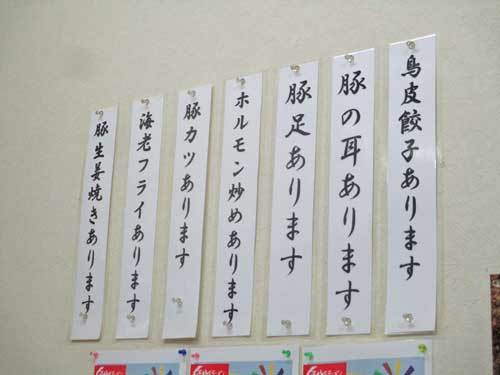 鳥皮餃子あります
豚の耳あります
豚足あります
ホルモン炒めあります
豚カツあります
海老フライあります
豚生姜焼きあります